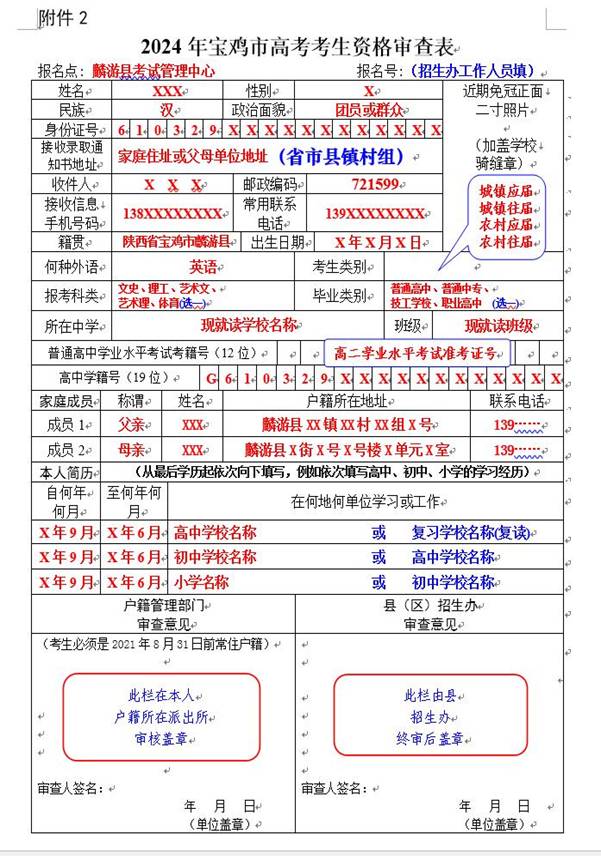 附件 2
2024 年宝鸡市高考考生资格审查表
报名点：麟游县考试管理中心 报名号：（招生办工作人员填）
姓名 XXX 性别 X 近期免冠正面
二寸照片
（加盖学校
骑缝章）
民族 汉 政治面貌 团员或群众
身份证号 6 1 0 3 2 9 X X X X X X X X X X X X
接收录取通
知书地址 家庭住址或父母单位地址（省市县镇村组）
收件人 X X X 邮政编码 721599
接收信息
手机号码 138XXXXXXXX 常用联系
电话 139XXXXXXXX
城镇应届
城镇往届
农村应届
农村往届
籍贯 陕西省宝鸡市麟游县 出生日期 X 年 X 月 X 日
何种外语 英语 考生类别
报考科类 文史、理工、艺术文、
艺术理、体育(选一) 毕业类别 普通高中、普通中专、
技工学校、职业高中 (选一)
所在中学 现就读学校名称 班级 现就读班级
普通高中学业水平考试考籍号（12 位） 高二学业水平考试准考证号
高中学籍号（19 位） G 6 1 0 3 2 9 X X X X X X X X X X X X
家庭成员 称谓 姓名 户籍所在地址 联系电话
成员 1 父亲 XXX 麟游县 XX 镇 XX 村 XX 组 X 号 139……
成员 2 母亲 XXX 麟游县 X 街 X 号 X 号楼 X 单元 X 室 139……
本人简历 （从最后学历起依次向下填写，例如依次填写高中、初中、小学的学习经历）
自何年
何月 至何年何
月 在何地何单位学习或工作
X 年 9 月 X 年 6 月 高中学校名称 或 复习学校名称(复读)
X 年 9 月 X 年 6 月 初中学校名称 或 高中学校名称
X 年 9 月 X 年 6 月 小学名称 或 初中学校名称
户籍管理部门
审查意见 县（区）招生办
审查意见
（考生必须是 2021 年 8 月 31 日前常住户籍）
此栏在本人
户籍所在派出所
审核盖章
此栏由县
招生办
终审后盖章
审查人签名： 审查人签名：
年 月 日 年 月 日
（单位盖章） （单位盖章）